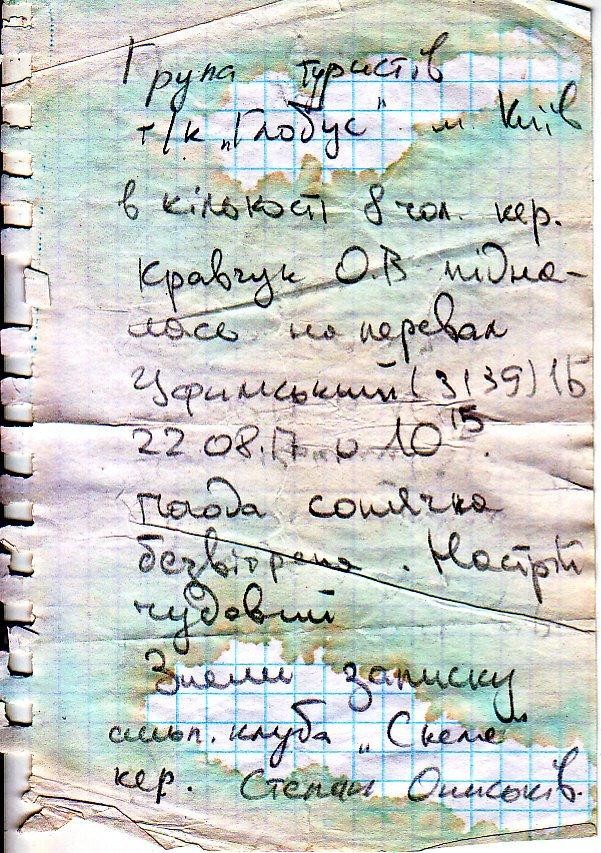 Група туристів
т/к „Глобус" м. Київ
в кількості 8 чол. кер.
Кравчук О.В підня-
лась на перевал
Уфимський (3139) 1Б
22.08.17 о 10¹⁵.
Погода сонячна
безвітряна. Настрій
чудовий
Зняли записку
альп. клуба „Скеля"
кер. Степан